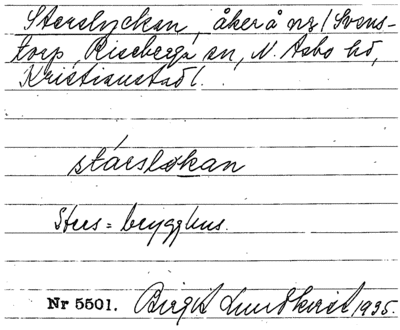 Sterslyckan, åker å nr 1 Svens-
torp, Riseberga sn, N. Åsbo hd,
Kristianstad l.
stársløkan
Sters = brygghus.
Nr 5501. Birgit Lundkvist 1935.